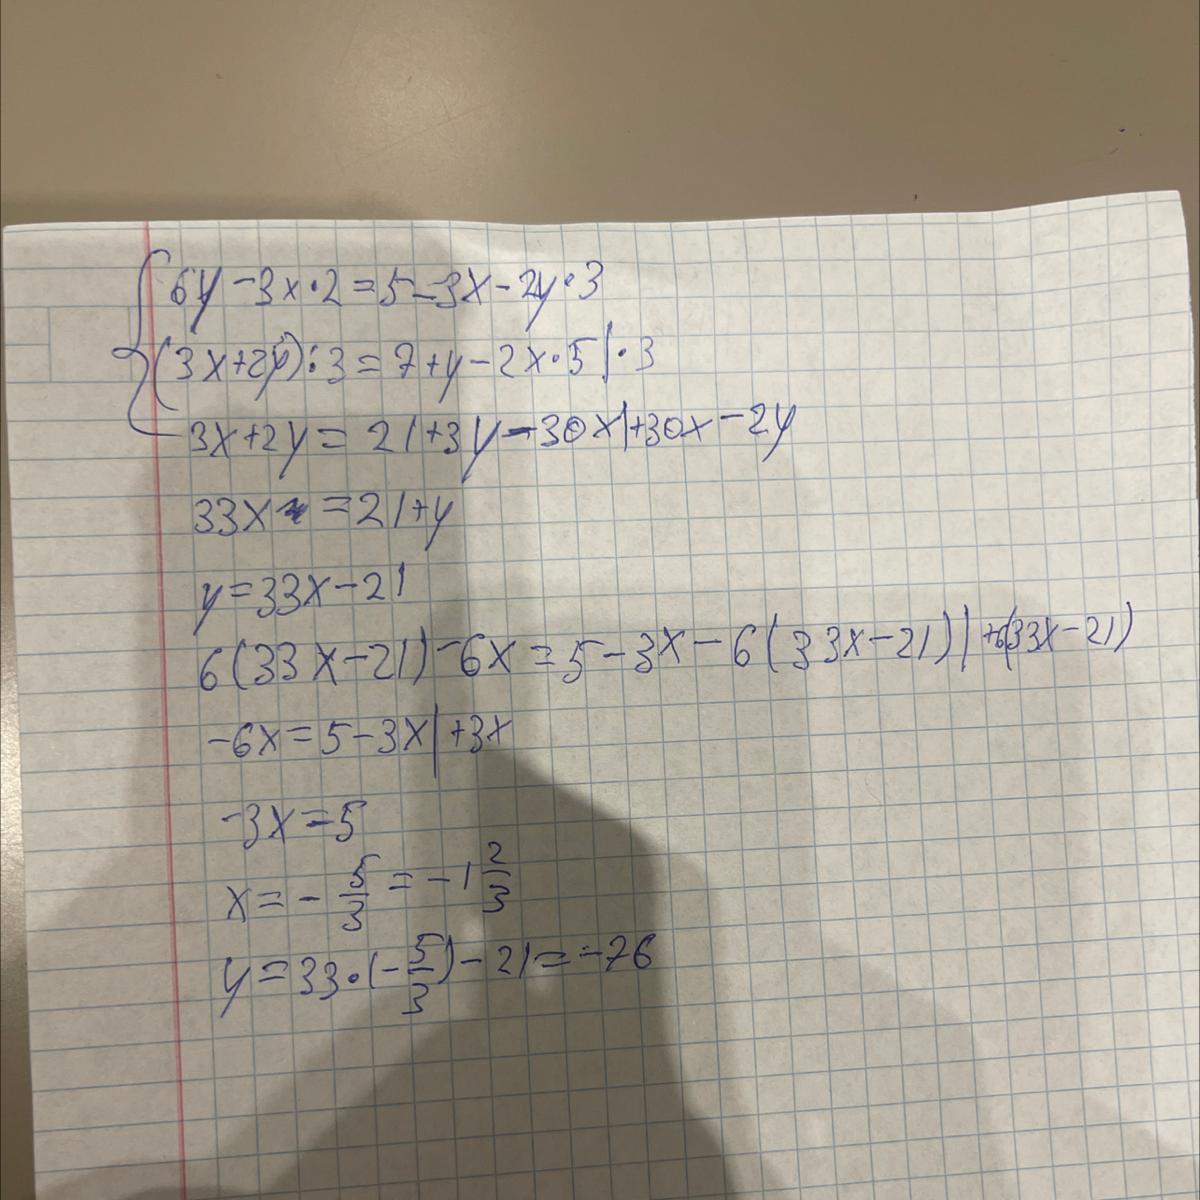 6y-3x·2=5-3x-2y·3
(3x+2y):3=7+y-2x·5|·3
3x+2y=21+3y-30x|+30x-2y
33x=21+y
y=33x-21
6(33x-21)-6x=5-3x-6(33x-21)|+6(33x-21)
-6x=5-3x|+3x
-3x=5
x=-5/3=-1 2/3
y=33·(-5/3)-21=-76